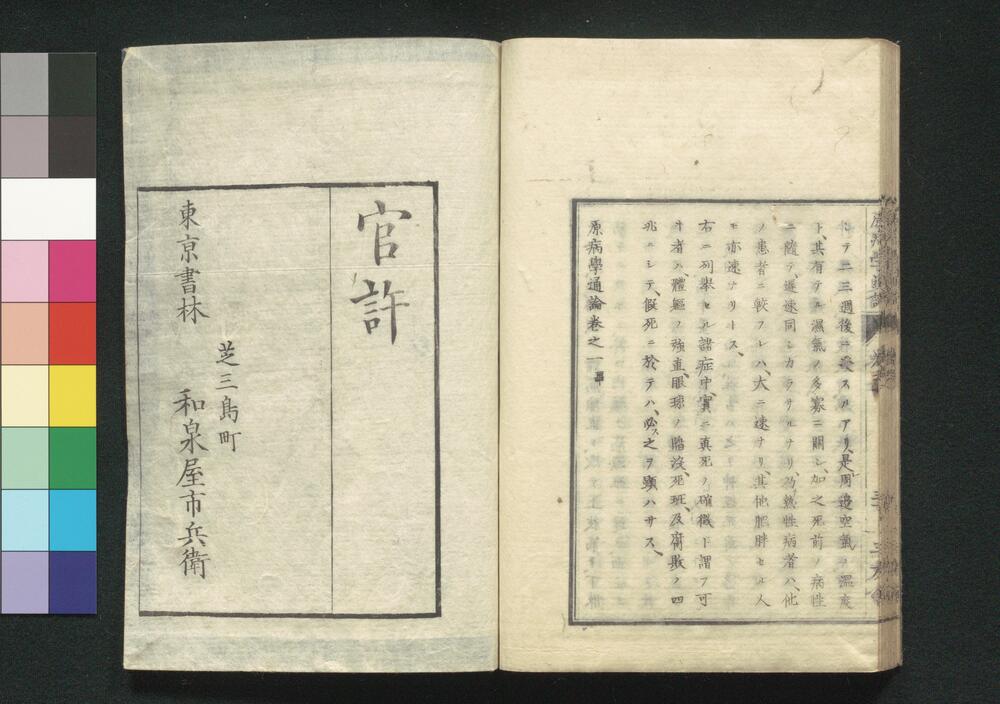 ルテ二三週後ニ発スルアリ、是周邊空氣ノ温度
ト、其有テル濕氣ノ多寡ニ關シ、加之死前ノ病性
ニ随テ、遲速同シカラサルナリ、乃熱性病者ハ、他
ノ患者ニ較フレハ、大ニ速ナリ、其他肥胖セル人
モ亦速ナリトス、
右ニ列擧セル諸症中、實ニ真死ノ確徴ト謂フ可
キ者ハ、體軀ノ強直、眼球ノ陷没、死斑、及腐敗ノ四
兆ニシテ、假死ニ於テハ、必ス之ヲ顕ハサス、
原病學通論卷之一畢
官許
東京書林
芝三島町
和泉屋市兵衛